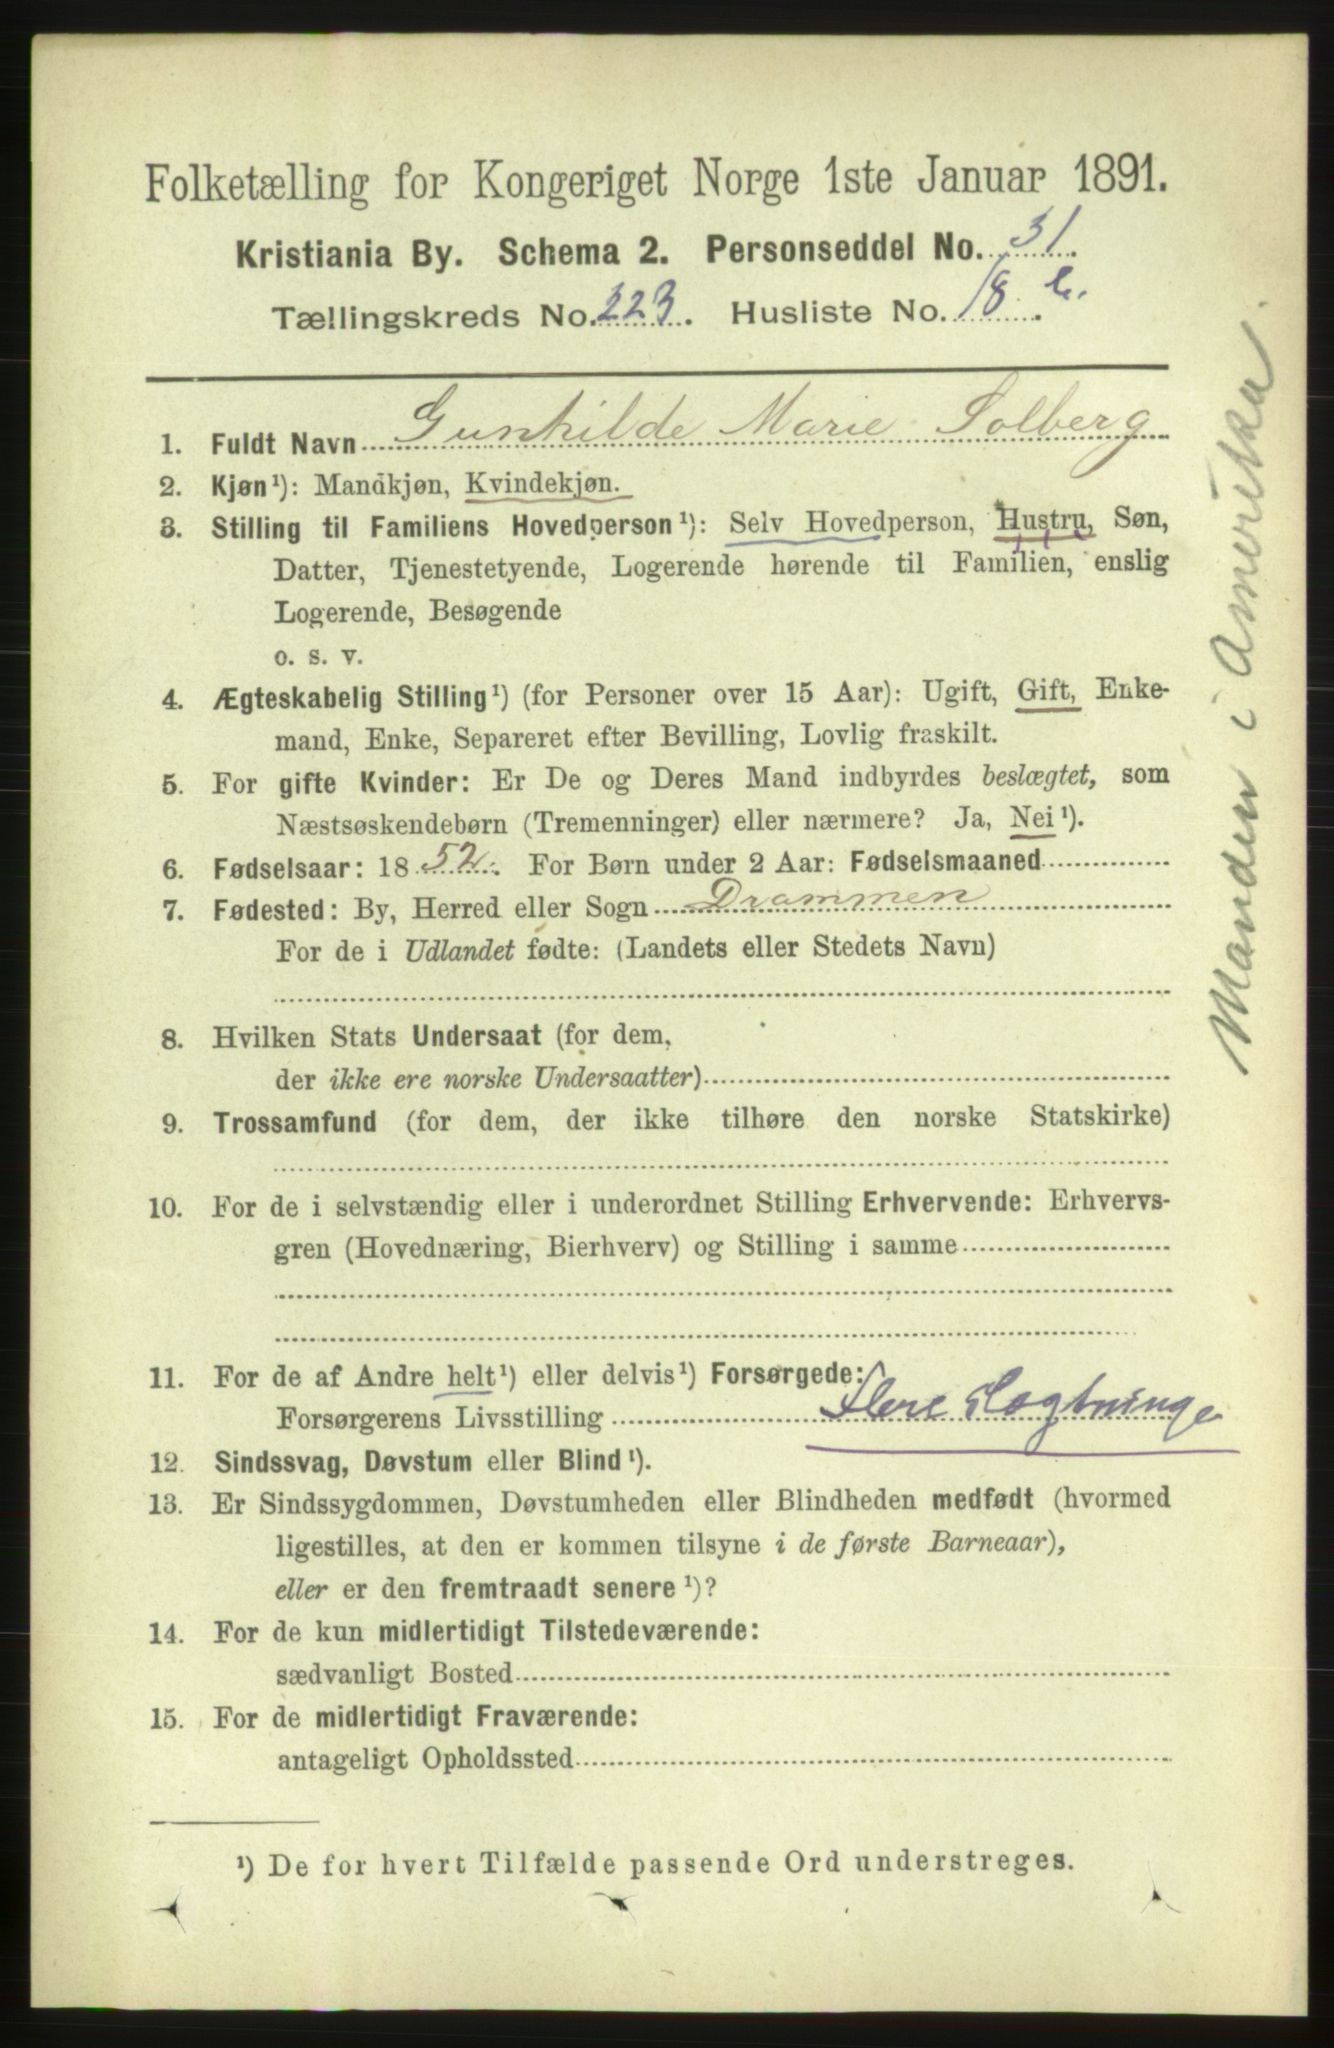 Folketælling for Kongeriget Norge 1ste Januar 1891.
Kristiania By. Schema 2. Personseddel No. 31.
Tællingskreds No. 223. Husliste No. 18 b.
1. Fuldt Navn Gunhilde Marie Solberg
2. Kjøn¹): Mandkjøn, Kvindekjøn.
3. Stilling til Familiens Hovedperson¹): Selv Hovedperson, Hustru, Søn,
Datter, Tjenestetyende, Logerende hørende til Familien, enslig
Logerende, Besøgende
o. s. v.
4. Ægteskabelig Stilling¹) (for Personer over 15 Aar): Ugift, Gift, Enke-
mand, Enke, Separeret efter Bevilling, Lovlig fraskilt.
5. For gifte Kvinder: Er De og Deres Mand indbyrdes beslægtet, som
Næstsøskendebørn (Tremenninger) eller nærmere? Ja, Nei¹).
6. Fødselsaar: 1852. For Børn under 2 Aar: Fødselsmaaned
7. Fødested: By, Herred eller Sogn Drammen
For de i Udlandet fødte: (Landets eller Stedets Navn)
8. Hvilken Stats Undersaat (for dem,
der ikke ere norske Undersaatter)
9. Trossamfund (for dem, der ikke tilhøre den norske Statskirke)
10. For de i selvstændig eller i underordnet Stilling Erhvervende: Erhvervs-
gren (Hovednæring, Bierhverv) og Stilling i samme
11. For de af Andre helt¹) eller delvis¹) Forsørgede:
Forsørgerens Livsstilling flere Slægtninge
12. Sindssvag, Døvstum eller Blind¹).
13. Er Sindssygdommen, Døvstumheden eller Blindheden medfødt (hvormed
ligestilles, at den er kommen tilsyne i de første Barneaar),
eller er den fremtraadt senere¹)?
14. For de kun midlertidigt Tilstedeværende:
sædvanligt Bosted
15. For de midlertidigt Fraværende:
antageligt Opholdssted
¹) De for hvert Tilfælde passende Ord understreges.
Manden i Amerika.